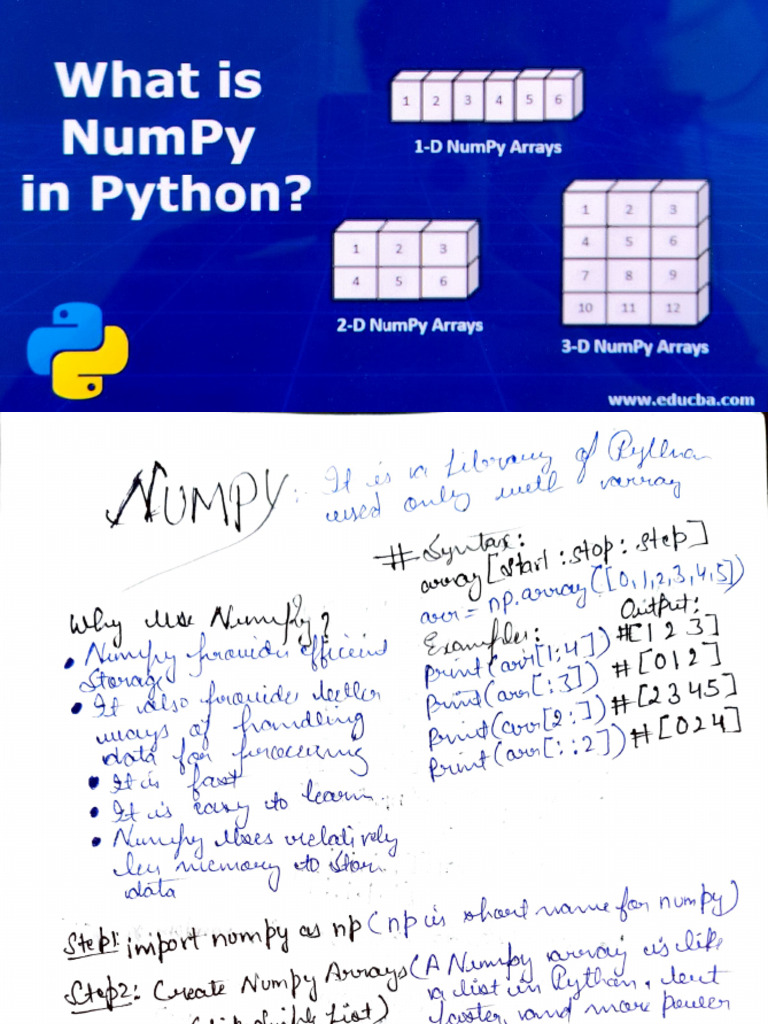 What is
NumPy
in Python?
1 2 3 4 5 6
1-D NumPy Arrays
1 2 3
4 5 6
2-D NumPy Arrays
1 2 3
4 5 6
7 8 9
10 11 12
3-D NumPy Arrays
www.educba.com
NUMPY: It is a Library of Python
used only with array
# Syntax:
array[start:stop:step]
arr = np.array([0,1,2,3,4,5])
Examples: Output:
print(arr[1:4]) #[1 2 3]
print(arr[:3]) #[0 1 2]
print(arr[2:]) #[2 3 4 5]
print(arr[::2]) #[0 2 4]
Why Use Numpy?
• Numpy provides efficient
storage
• It also provides better
ways of handling
data for processing
• It is fast
• It is easy to learn
• Numpy uses relatively
less memory to store
data
Step1: import numpy as np (np is short name for numpy)
Step2: Create Numpy Arrays (A Numpy array is like
a list in Python, but
faster and more power
List)